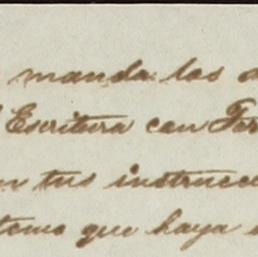 manda los
Escritura con
tus instrucc
temo que haya